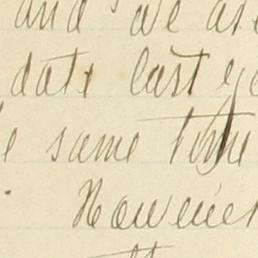 and we are
date last ye
e same time
However